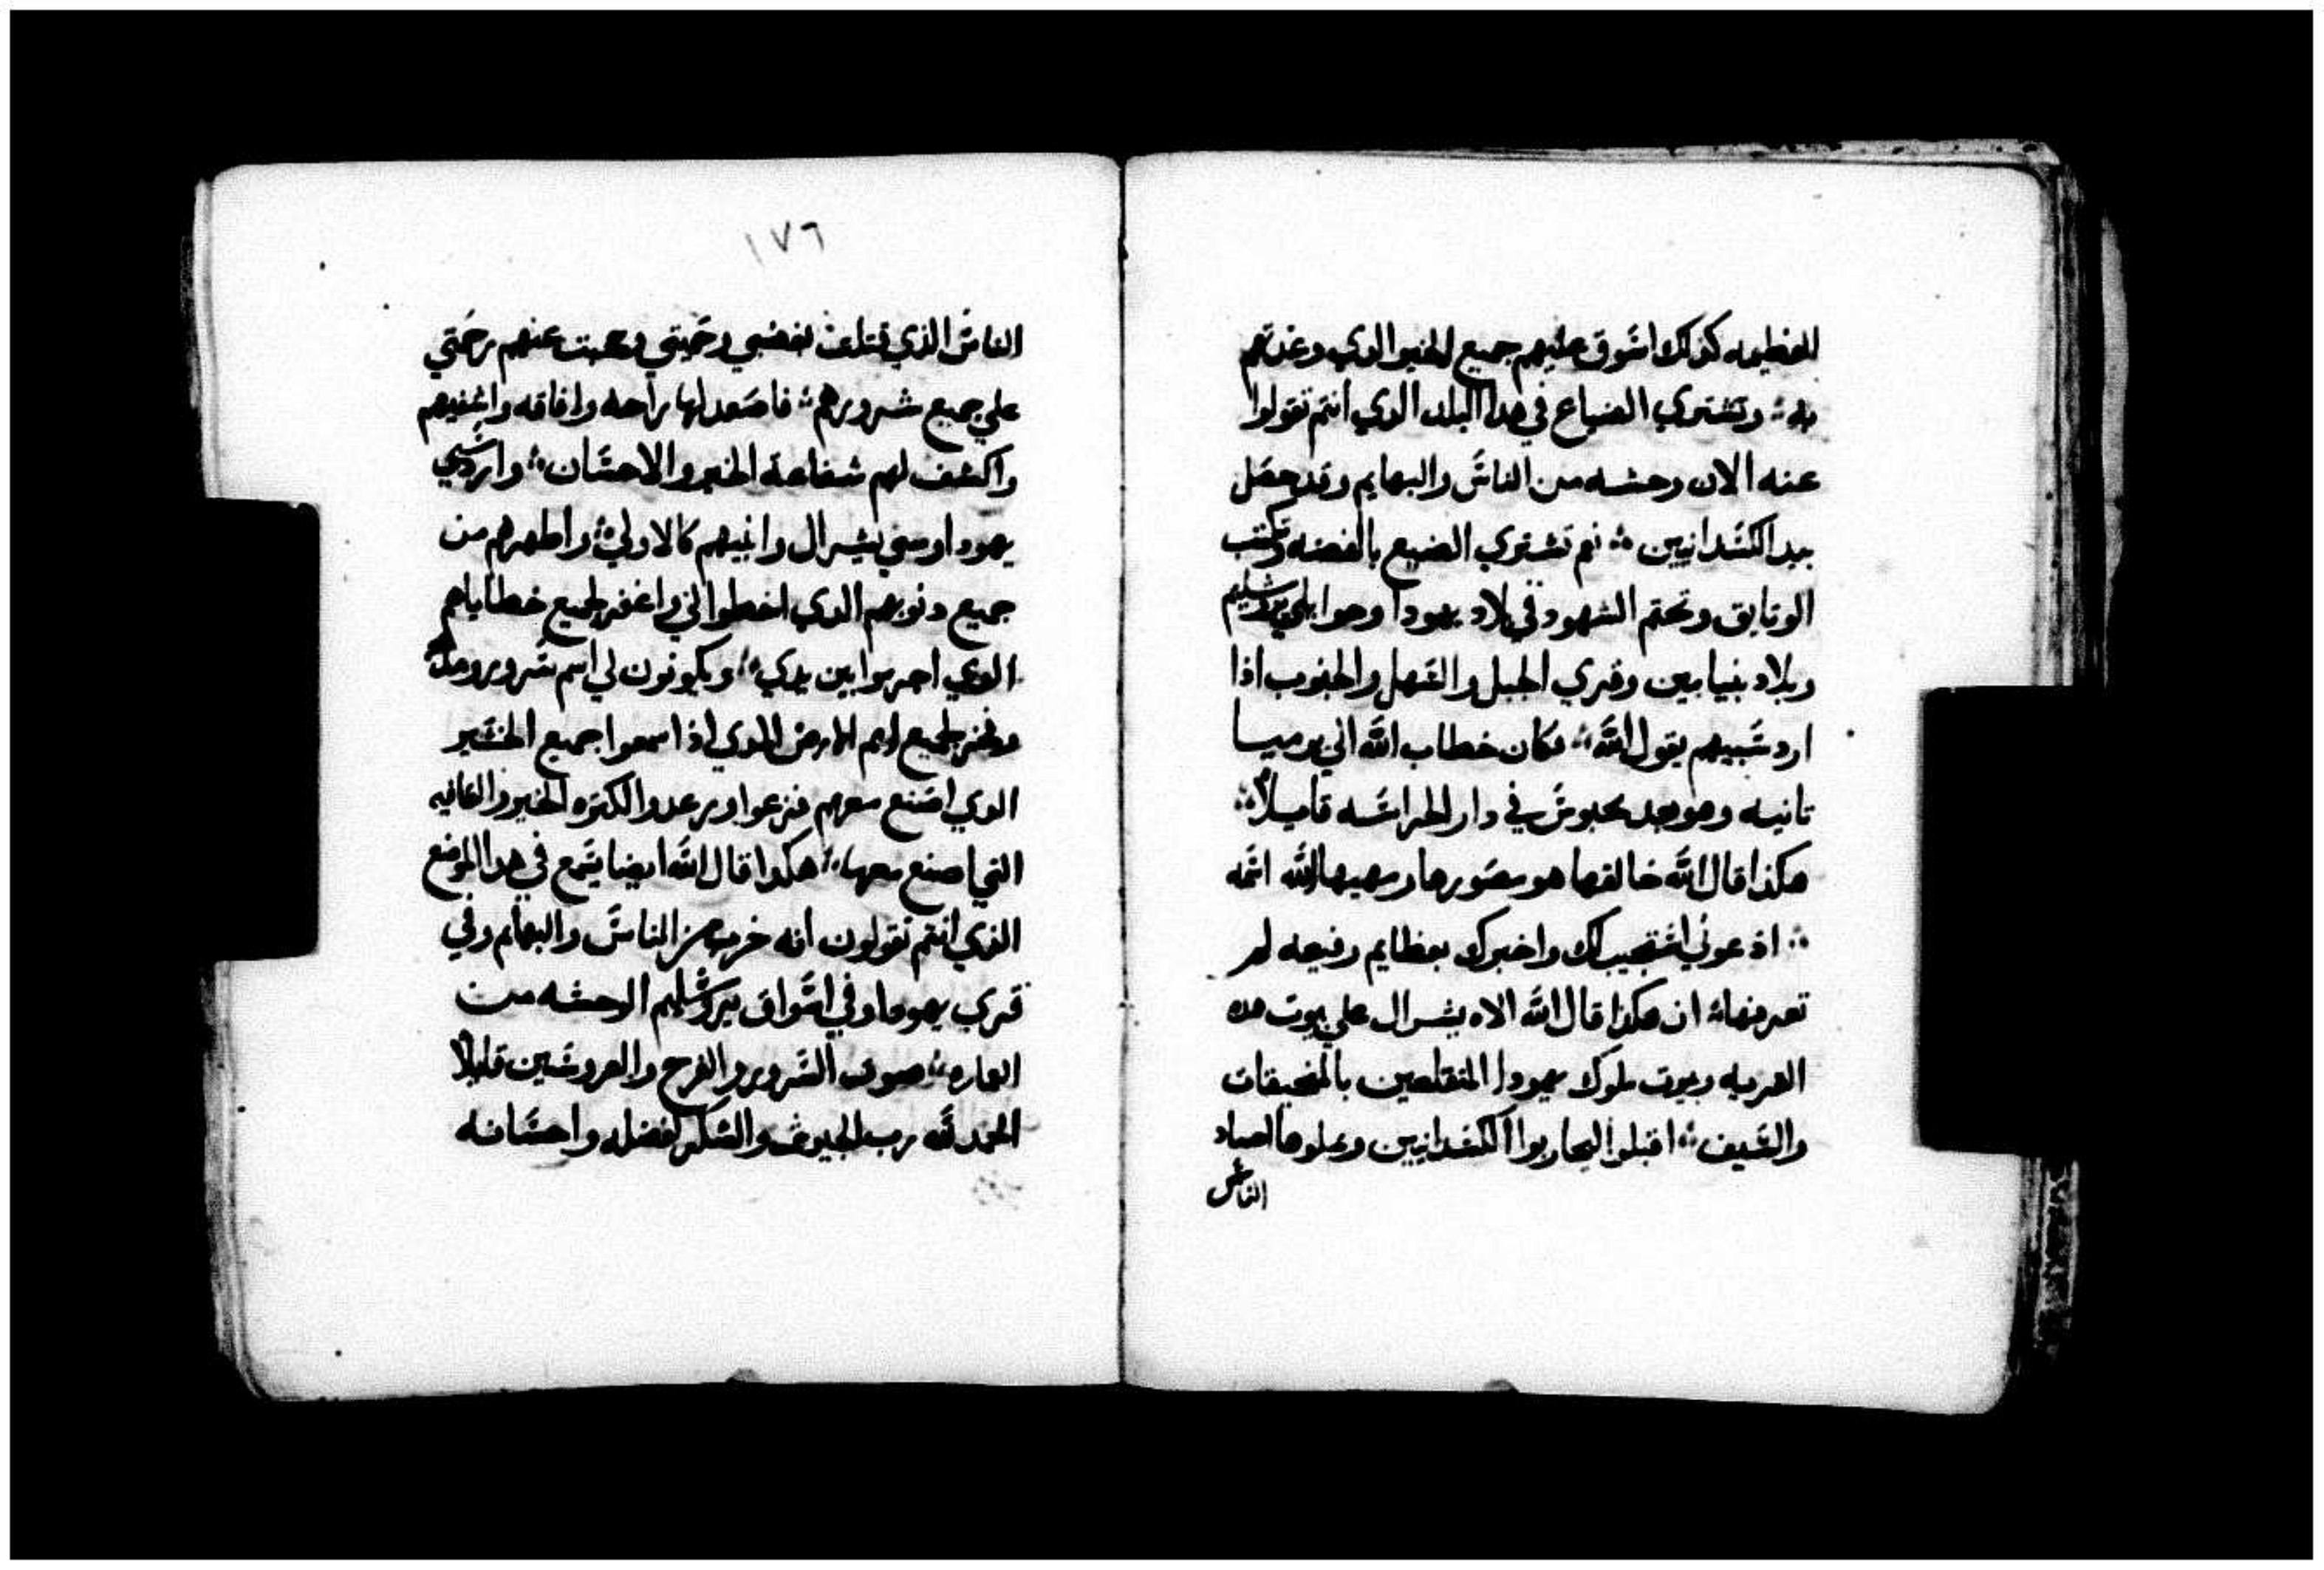 العظيمه كذلك اسوق عليهم جميع الخير الدي وعدتهم
به ∴ وتشتري الضياع في هدا البلد الدي انتم تقولوا
عنه الان وحشه من الناس والبهايم وقد حصل
بيد الكسدانيين ∴ نعم تشتري الضيع بالفضه وتكتب
الوتايق وتختم الشهود في بلاد يهودا وحوالي يروشليم
وبلاد بنيامين وقري الجبل والسهل والجنوب اذا
ارد سبيهم يقول الله ∴ فكان خطاب الله الي يرميا
تانيه وهو بعد محبوس في دار الحراسه قايلا ∴
هكذا قال الله خالقها هو مصورها ومهيها الله اسمه
∴ ادعوني استجيب لك واخبرك بعظايم رفيعه لم
تعرفها ∴ ان هكذا قال الله الاه يشرال علي بيوت هده
القريه وبيوت ملوك يهودا المتقلعين بالمنجنيقات
والسيف ∴ اقبلوا ليحاربوا الكسدانيين وعلوها اجساد
الناس
١٧٦
الناس الذي قتلت بغضبي وحميتي وحجبت عنهم رحمتي
علي جميع شرورهم ∴ فاصعد لها راحه وافاقه واشفيهم
واكشف لهم شفاعة الخير والاحسان ∴ وارد سبي
يهودا وسبي يشرال وابنيهم كالاولي ∴ واطهرهم من
جميع دنوبهم الدي اخطوا لي واغفر لجميع خطاياهم
الدي اجرموا بين يدي ∴ ويكونون لي اسم سرور ومدح
وفخر لجميع امم الارض الدي اذا سمعوا جميع الخير
الدي اصنع معهم فزعوا ورعدوا لكتره الخير والعافيه
التي اصنع معها ∴ هكدا قال الله ايضا يسمع في هدا الموضع
الذي انتم تقولون انه خرب من الناس والبهايم وفي
قري يهودا وفي اسواق يروشليم الوحشه من
العاره ∴ صوت السرور والفرح والعروسين قايلا
الحمد لله رب الجيوش والشكر لفضله واحسانه